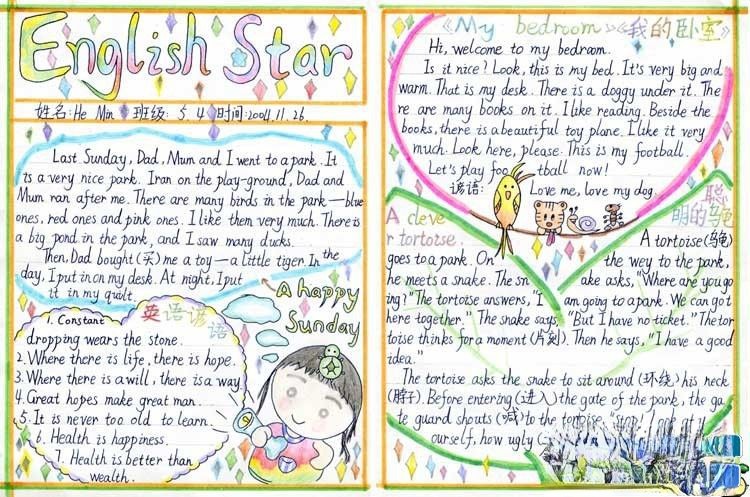 English Star
姓名:He Min 班级: 5.4 时间:2004.11.26.
Last Sunday, Dad, Mum and I went to a park. It
is a very nice park. Iran on the play-ground, Dad and
Mum ran after me. There are many birds in the park—blue
ones, red ones and pink ones. I like them very much. There is
a big pond in the park, and I saw many ducks.
Then, Dad bought(买) me a toy—a little tiger. In the
day, I put in on my desk. At night, I put
it in my quilt.
A happy
Sunday
英语谚语
1. Constant
dropping wears the stone.
2. Where there is life, there is hope.
3. Where there is a will, there is a way
4. Great hopes make great man.
5. It is never too old to learn.
6. Health is happiness.
7. Health is better than
wealth.
《My bedroom》《我的卧室》
Hi, welcome to my bedroom.
Is it nice? Look, this is my bed. It's very big and
warm. That is my desk. There is a doggy under it. The
re are many books on it. I like reading. Beside the
books, there is a beautiful toy plane. I like it very
much. Look here, please. This is my football.
Let's play foo tball now!
谚语: Love me, love my dog.
A cleve
r tortoise.
聪
明的乌龟
A tortoise(乌龟)
goes to a park. On the wey to the park,
he meets a snake. The sn ake asks, "Where are you go
ing?" The tortoise answers, "I am going to a park. We can got
here together." The snake says, "But I have no ticket." The tor
toise thinks for a moment (片刻). Then he says, "I have a good
idea."
The tortoise asks the snake to sit around (环绕) his neck
(脖子). Before entering (进入) the gate of the park, the ga
te guard shouts (喊) to the tortoise "stop! look at y
ourself, how ugly